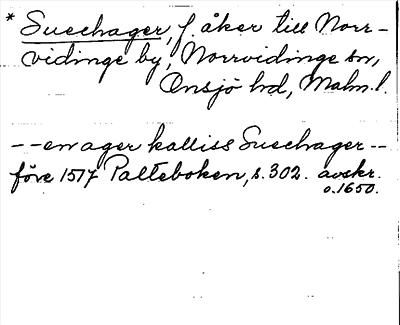 * Suechager, f. åker till Norr-
vidinge by, Norrvidinge sn,
Onsjö hd, Malm. l.
-- en ager kalliss Suechager --
före 1517 Palteboken, s. 302. avskr.
o. 1650.